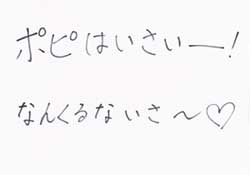 ポピはいさいー!
なんくるないさ〜♡